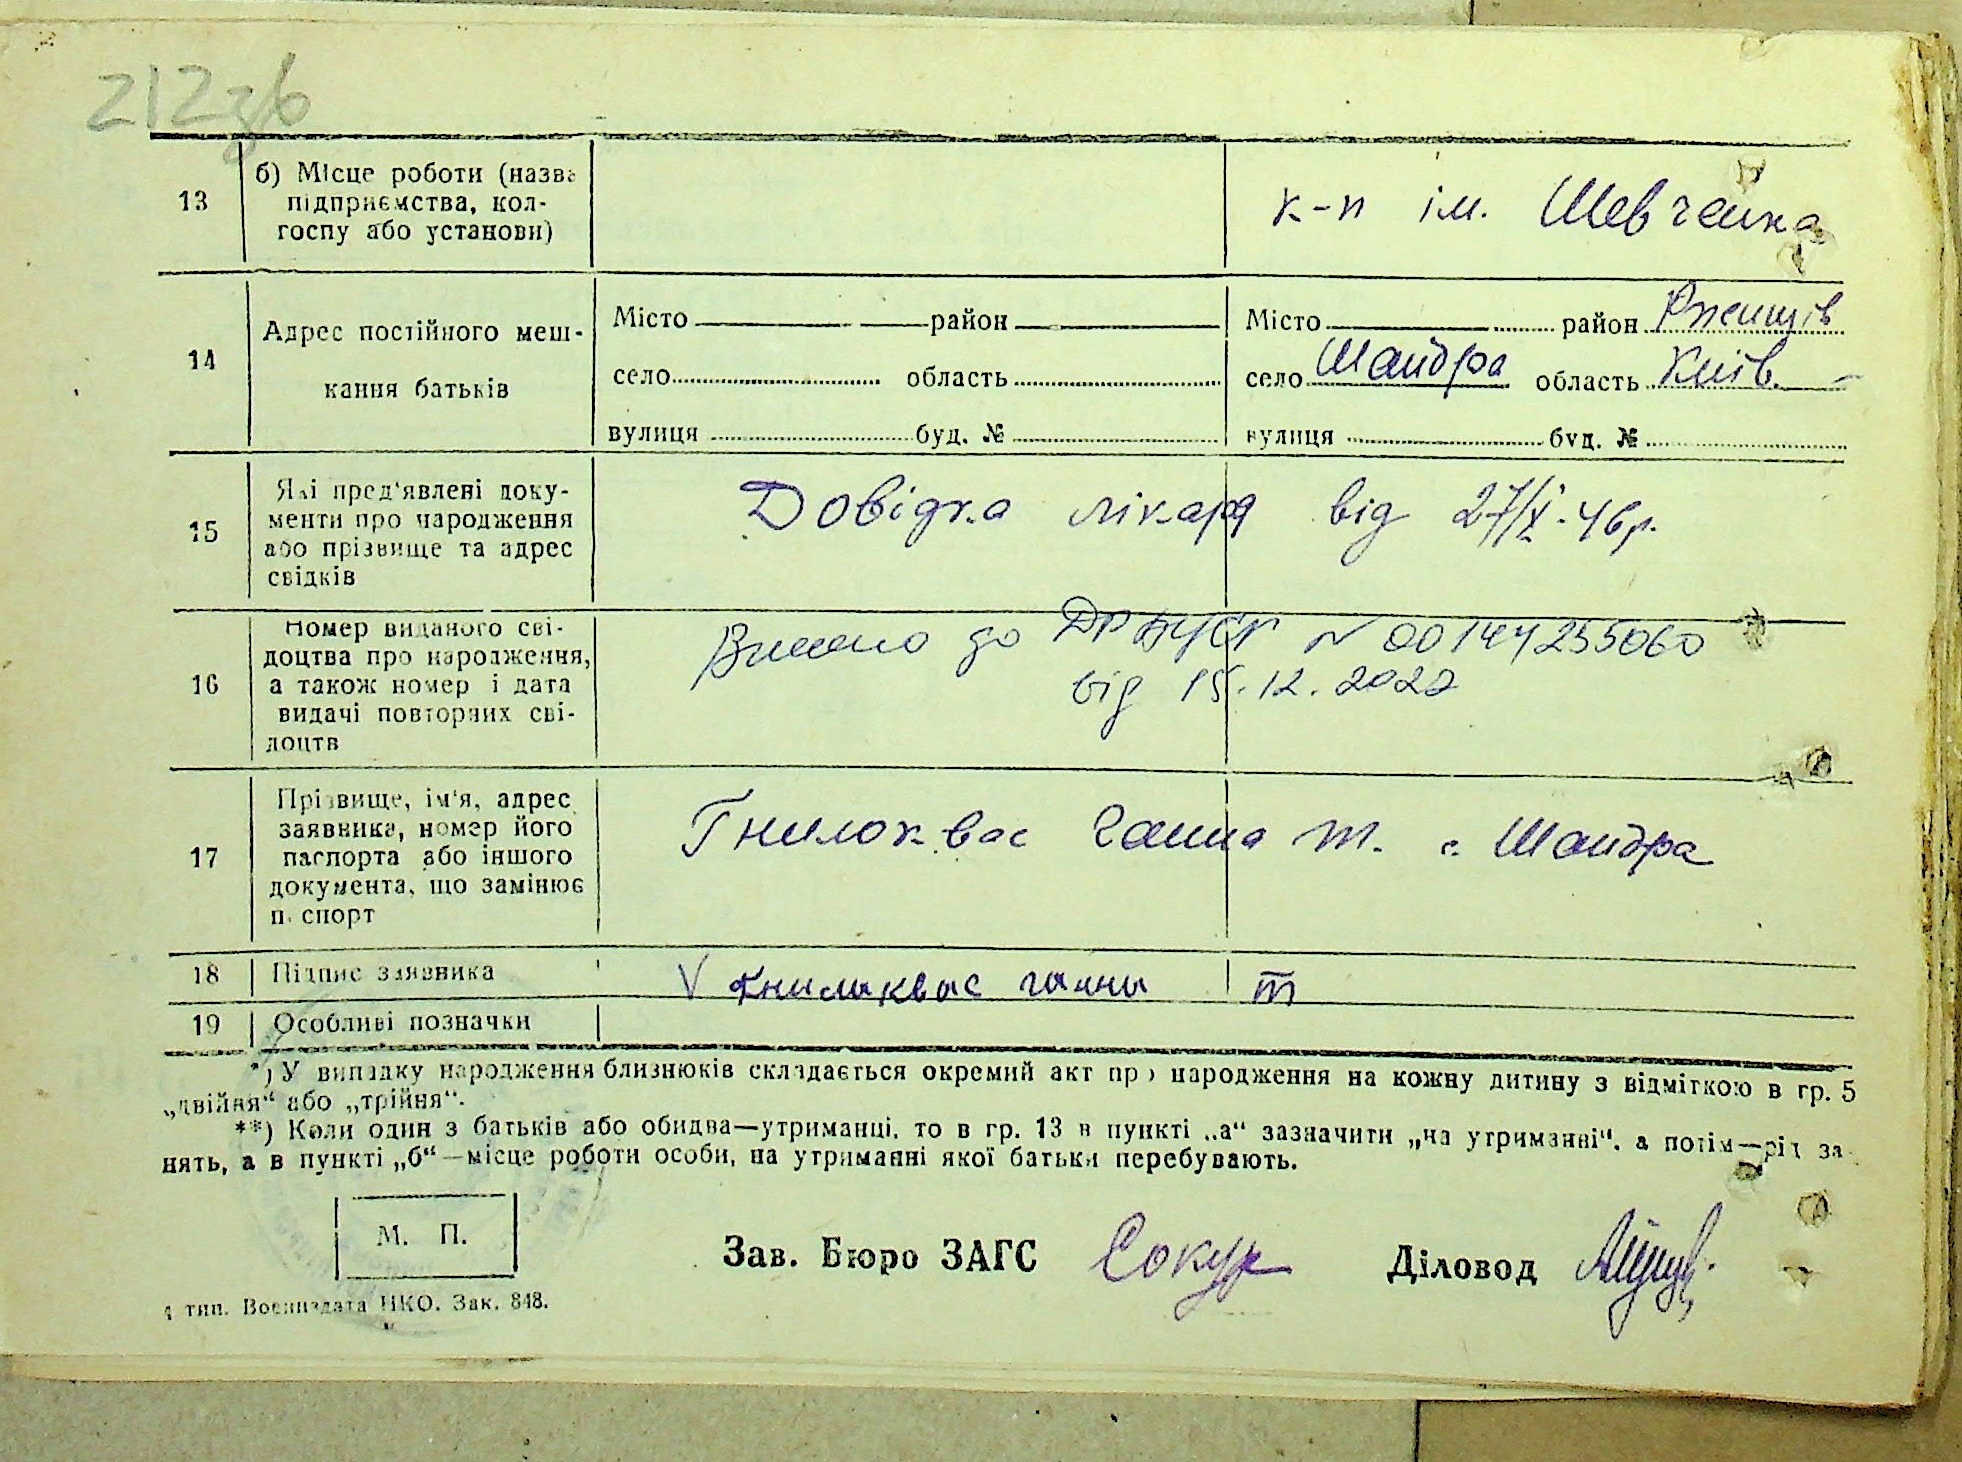 212зв
13 б) Місце роботи (назва
підприємства, кол-
госпу або установи)
к-п ім. Шевченка
14 Адрес постійного меш-
кання батьків
Місто район Місто район Ржищів
село область село Шандра область Київ.
вулиця буд. № вулиця буд. №
15 Які пред'явлені доку-
менти про народження
або прізвище та адрес
свідків
Довідка лікаря від 27/X-46р.
16 Номер виданого сві-
доцтва про народження,
а також номер і дата
видачі повторних сві-
доцтв
Внесено до ДРАЦСГ № 00144255060
від 15.12.2022
17 Прізвище, ім'я, адрес
заявника, номер його
паспорта або іншого
документа, що замінює
паспорт
Гнилоквас Ганна Т. с. Шандра
18 Підпис заявника V Гнилаквас ганна т
19 Особливі позначки
*) У випадку народження близнюків складається окремий акт про народження на кожну дитину з відміткою в гр. 5
„двійня“ або „трійня“.
**) Коли один з батьків або обидва—утриманці, то в гр. 13 в пункті „а“ зазначити „на утриманні“, а потім—рід за-
нять, а в пункті „б“—місце роботи особи, на утриманні якої батьки перебувають.
М. П.
Зав. Бюро ЗАГС Сокур Діловод
4 тип. Воениздата НКО. Зак. 848.